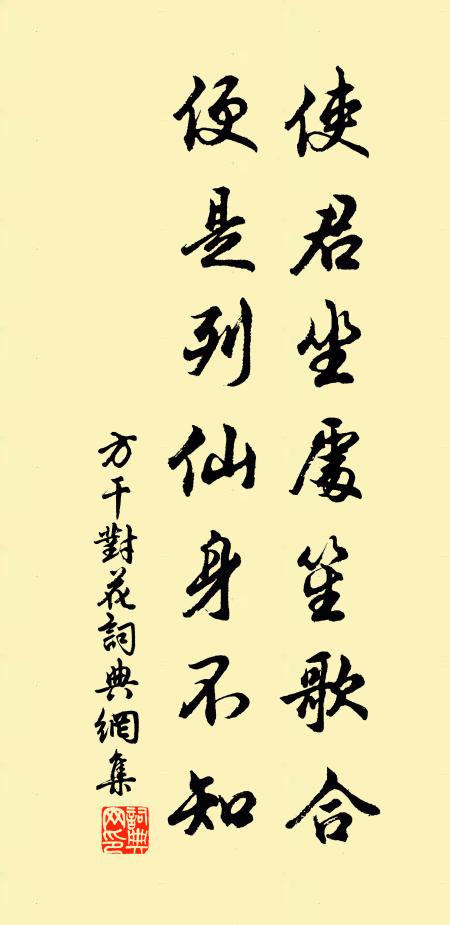 使君坐處笙歌合
便是列仙身不知
方干對花詞典網集
詞典網印